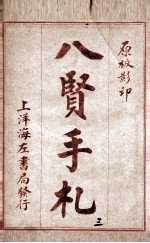 原板影印
八賢手札
三
上洋海左書局發行